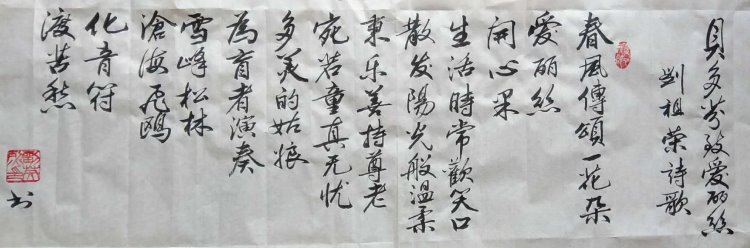 貝多芬致愛丽絲
劉祖荣詩歌
春風傳頌一花朵
愛丽絲
開心果
生活時常歡笑口
散发陽光般温柔
秉乐善持尊老
宛若童真无忧
多美的姑娘
為盲者演奏
雪峰松林
滄海飞鸥
化音符
渡苦愁
书